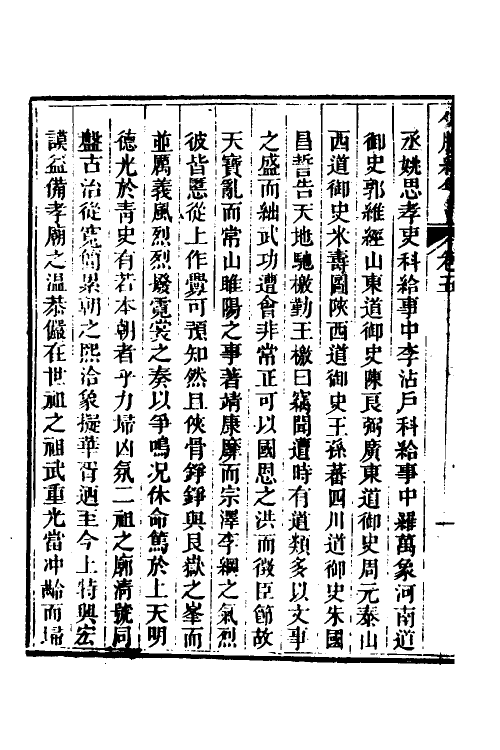 卷五
丞姚思孝吏科給事中李沾戶科給事中羅萬象河南道
御史郭維經山東道御史陳良弼廣東道御史周元泰山
西道御史米壽圖陝西道御史王孫蕃四川道御史朱國
昌誓告天地馳檄勤王檄曰竊聞遭時有道類多以文事
之盛而絀武功遭會非常正可以國恩之洪而徵臣節故
天寶亂而常山睢陽之事著靖康靡而宗澤李綱之氣烈
彼皆惡從上作釁可預知然且俠骨錚錚與艮嶽之峯而
並厲義風烈烈撥霓裳之奏以爭鳴况休命篤於上天明
德光於靑史有若本朝者乎力埽凶氛二祖之廓淸號同
盤古治從寬簡累朝之熙洽象擬華胥迺至今上特興宏
謨益備孝廟之溫恭儼在世祖之祖武重光當冲齡而埽